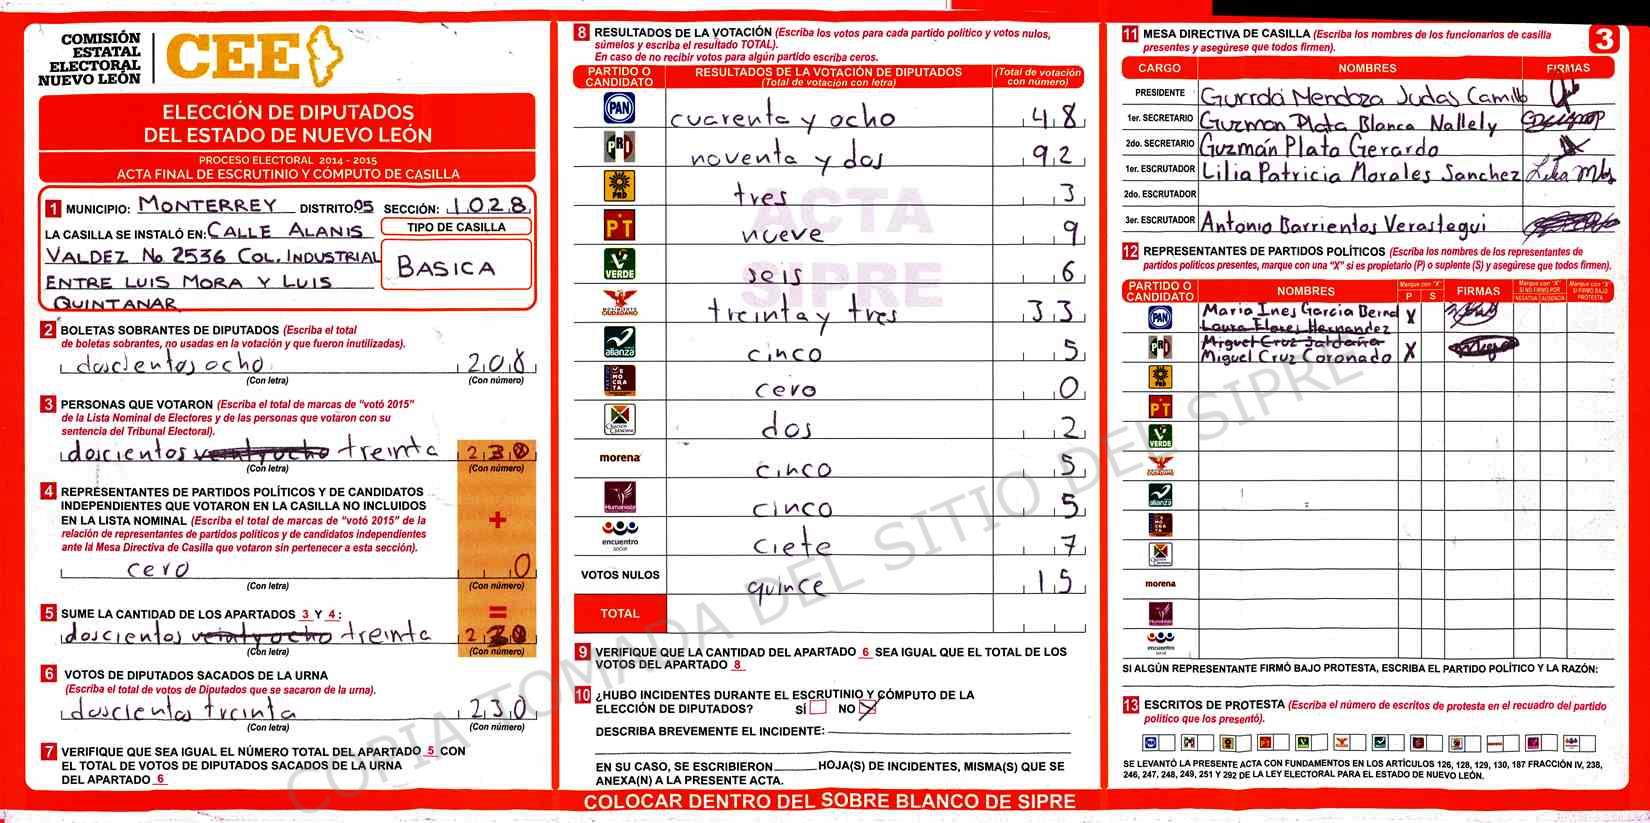 COMISIÓN
ESTATAL
ELECTORAL
NUEVO LEÓN
CEE
ELECCIÓN DE DIPUTADOS
DEL ESTADO DE NUEVO LEÓN
PROCESO ELECTORAL 2014 - 2015
ACTA FINAL DE ESCRUTINIO Y CÓMPUTO DE CASILLA
1 MUNICIPIO: MONTERREY DISTRITO 05 SECCIÓN: 1028
LA CASILLA SE INSTALÓ EN: CALLE ALANIS
TIPO DE CASILLA
VALDEZ No 2536 COL. INDUSTRIAL
BASICA
ENTRE LUIS MORA Y LUIS
QUINTANAR
2 BOLETAS SOBRANTES DE DIPUTADOS (Escriba el total
de boletas sobrantes, no usadas en la votación y que fueron inutilizadas).
doscientos ocho 208
(Con letra) (Con número)
3 PERSONAS QUE VOTARON (Escriba el total de marcas de "votó 2015"
de la Lista Nominal de Electores y de las personas que votaron con su
sentencia del Tribunal Electoral).
doscientos veintyocho treinta 230
(Con letra) (Con número)
4 REPRESENTANTES DE PARTIDOS POLÍTICOS Y DE CANDIDATOS
INDEPENDIENTES QUE VOTARON EN LA CASILLA NO INCLUIDOS
EN LA LISTA NOMINAL (Escriba el total de marcas de "votó 2015" de la
relación de representantes de partidos políticos y de candidatos independientes
ante la Mesa Directiva de Casilla que votaron sin pertenecer a esta sección).
+
cero 0
(Con letra) (Con número)
5 SUME LA CANTIDAD DE LOS APARTADOS 3 Y 4:
=
doscientos veintyocho treinta 230
(Con letra) (Con número)
6 VOTOS DE DIPUTADOS SACADOS DE LA URNA
(Escriba el total de votos de Diputados que se sacaron de la urna).
doscientos treinta 230
(Con letra) (Con número)
7 VERIFIQUE QUE SEA IGUAL EL NÚMERO TOTAL DEL APARTADO 5 CON
EL TOTAL DE VOTOS DE DIPUTADOS SACADOS DE LA URNA
DEL APARTADO 6
8 RESULTADOS DE LA VOTACIÓN (Escriba los votos para cada partido político y votos nulos,
súmelos y escriba el resultado TOTAL).
En caso de no recibir votos para algún partido escriba ceros.
PARTIDO O CANDIDATO RESULTADOS DE LA VOTACIÓN DE DIPUTADOS (Total de votación con letra) (Total de votación con número)
PAN cuarenta y ocho 48
PRD noventa y dos 92
PRD tres 3
PT nueve 9
VERDE seis 6
MOVIMIENTO CIUDADANO treinta y tres 33
alianza cinco 5
cero 0
dos 2
morena cinco 5
Humanista cinco 5
encuentro social ciete 7
VOTOS NULOS quince 15
TOTAL
9 VERIFIQUE QUE LA CANTIDAD DEL APARTADO 6 SEA IGUAL QUE EL TOTAL DE LOS
VOTOS DEL APARTADO 8
10 ¿HUBO INCIDENTES DURANTE EL ESCRUTINIO Y CÓMPUTO DE LA
ELECCIÓN DE DIPUTADOS? SÍ NO X
DESCRIBA BREVEMENTE EL INCIDENTE:
EN SU CASO, SE ESCRIBIERON HOJA(S) DE INCIDENTES, MISMA(S) QUE SE
ANEXA(N) A LA PRESENTE ACTA.
COLOCAR DENTRO DEL SOBRE BLANCO DE SIPRE
ACTA
SIPRE
COPIA TOMADA DEL SITIO DEL SIPRE
11 MESA DIRECTIVA DE CASILLA (Escriba los nombres de los funcionarios de casilla
presentes y asegúrese que todos firmen).
3
CARGO NOMBRES FIRMAS
PRESIDENTE Mendoza Judas Camilo
1er. SECRETARIO Guzman Plata Blanca Nallely
2do. SECRETARIO Guzmán Plata Gerardo
1er. ESCRUTADOR Lilia Patricia Morales Sanchez
2do. ESCRUTADOR
3er. ESCRUTADOR Antonio Barrientos Verastegui
12 REPRESENTANTES DE PARTIDOS POLÍTICOS (Escriba los nombres de los representantes de
partidos políticos presentes, marque con una "X" si es propietario (P) o suplente (S) y asegúrese que todos firmen).
PARTIDO O CANDIDATO NOMBRES Marque con "X" P S FIRMAS Marque con "X" SI NO FIRMO POR NEGATIVA AUSENCIA Marque con "X" SI FIRMO BAJO PROTESTA
PAN Maria Ines Garcia Bernal X
Laura Flores Hernandez
PRD Miguel Cruz Saldaña
Miguel Cruz Coronado X
PRD
PT
VERDE
alianza
morena
encuentro social
SI ALGÚN REPRESENTANTE FIRMÓ BAJO PROTESTA, ESCRIBA EL PARTIDO POLÍTICO Y LA RAZÓN:
13 ESCRITOS DE PROTESTA (Escriba el número de escritos de protesta en el recuadro del partido
político que los presentó).
SE LEVANTÓ LA PRESENTE ACTA CON FUNDAMENTOS EN LOS ARTÍCULOS 126, 128, 129, 130, 187 FRACCIÓN IV, 238,
246, 247, 248, 249, 251 Y 292 DE LA LEY ELECTORAL PARA EL ESTADO DE NUEVO LEÓN.